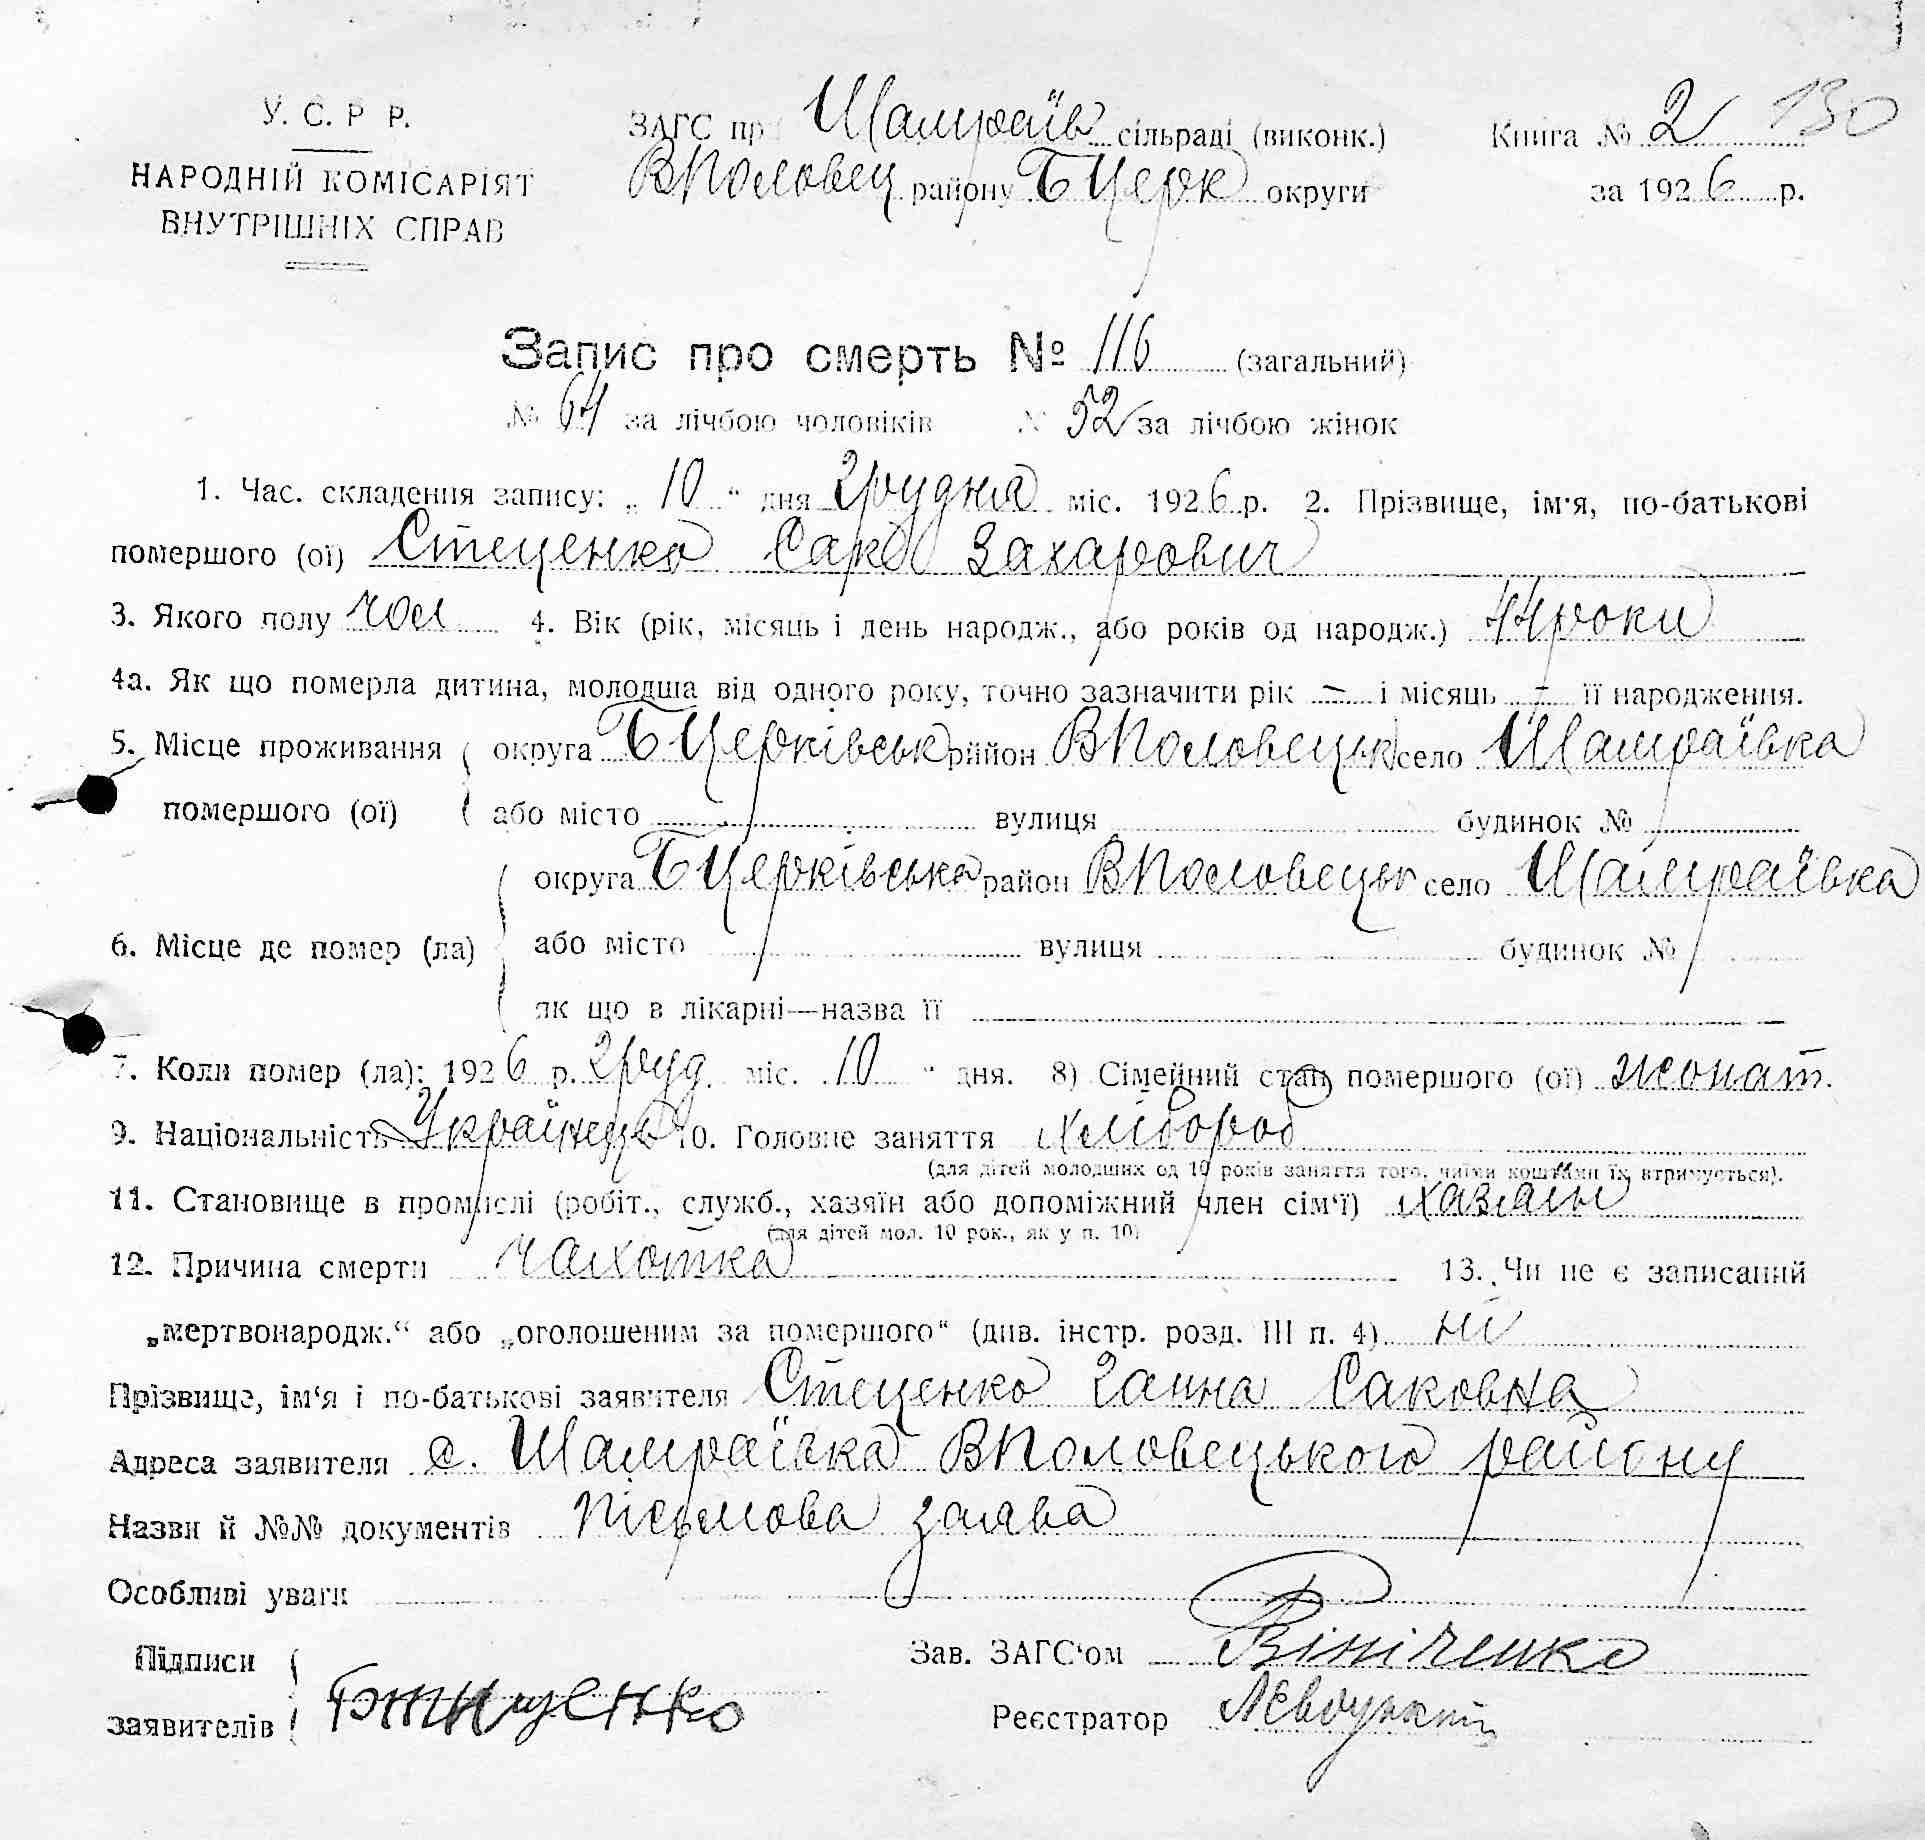 У. С. Р. Р.
НАРОДНІЙ КОМІСАРІЯТ
ВНУТРІШНІХ СПРАВ
ЗАГС пр Шамраїв сільраді (виконк.)
ВПоловец району БЦерк округи
Книга № 2 130
за 1926 р.
Запис про смерть № 116 (загальний)
№ 64 за лічбою чоловіків № 52 за лічбою жінок
1. Час. складення запису: „ 10 “ дня грудня міс. 1926 р. 2. Прізвище, ім'я, по-батькові
помершого (ої) Стеценко Сакő Захарович
3. Якого полу чол 4. Вік (рік, місяць і день народж., або років од народж.) 44 роки
4а. Як що померла дитина, молодша від одного року, точно зазначити рік — і місяць — її народження.
5. Місце проживання помершого (ої) округа БЦерківськ район ВПоловецьк село Шамраївка
або місто вулиця будинок №
6. Місце де помер (ла) округа БЦерківська район ВПоловецьк село Шамраївка
або місто вулиця будинок №
як що в лікарні—назва її
7. Коли помер (ла): 1926 р. груд. міс. 10 “ дня. 8) Сімейний стан помершого (ої) жонат.
9. Національність Українець 10. Головне заняття хлібороб
(для дітей молодших од 10 років заняття того, чиїми коштами їх втримується).
11. Становище в промислі (робіт., служб., хазяїн або допоміжний член сім'ї) хазяїн
(для дітей мол. 10 рок., як у п. 10)
12. Причина смерти чахотка 13. Чи не є записаний
„мертвонародж.“ або „оголошеним за помершого“ (див. інстр. розд. III п. 4) ні
Прізвище, ім'я і по-батькові заявителя Стеценко Ганна Саковна
Адреса заявителя с. Шамраївка ВПоловецького району
Назви й №№ документів письмова заява
Особливі уваги
Підписи
заявителів
Зав. ЗАГС'ом Вініченко
Реєстратор